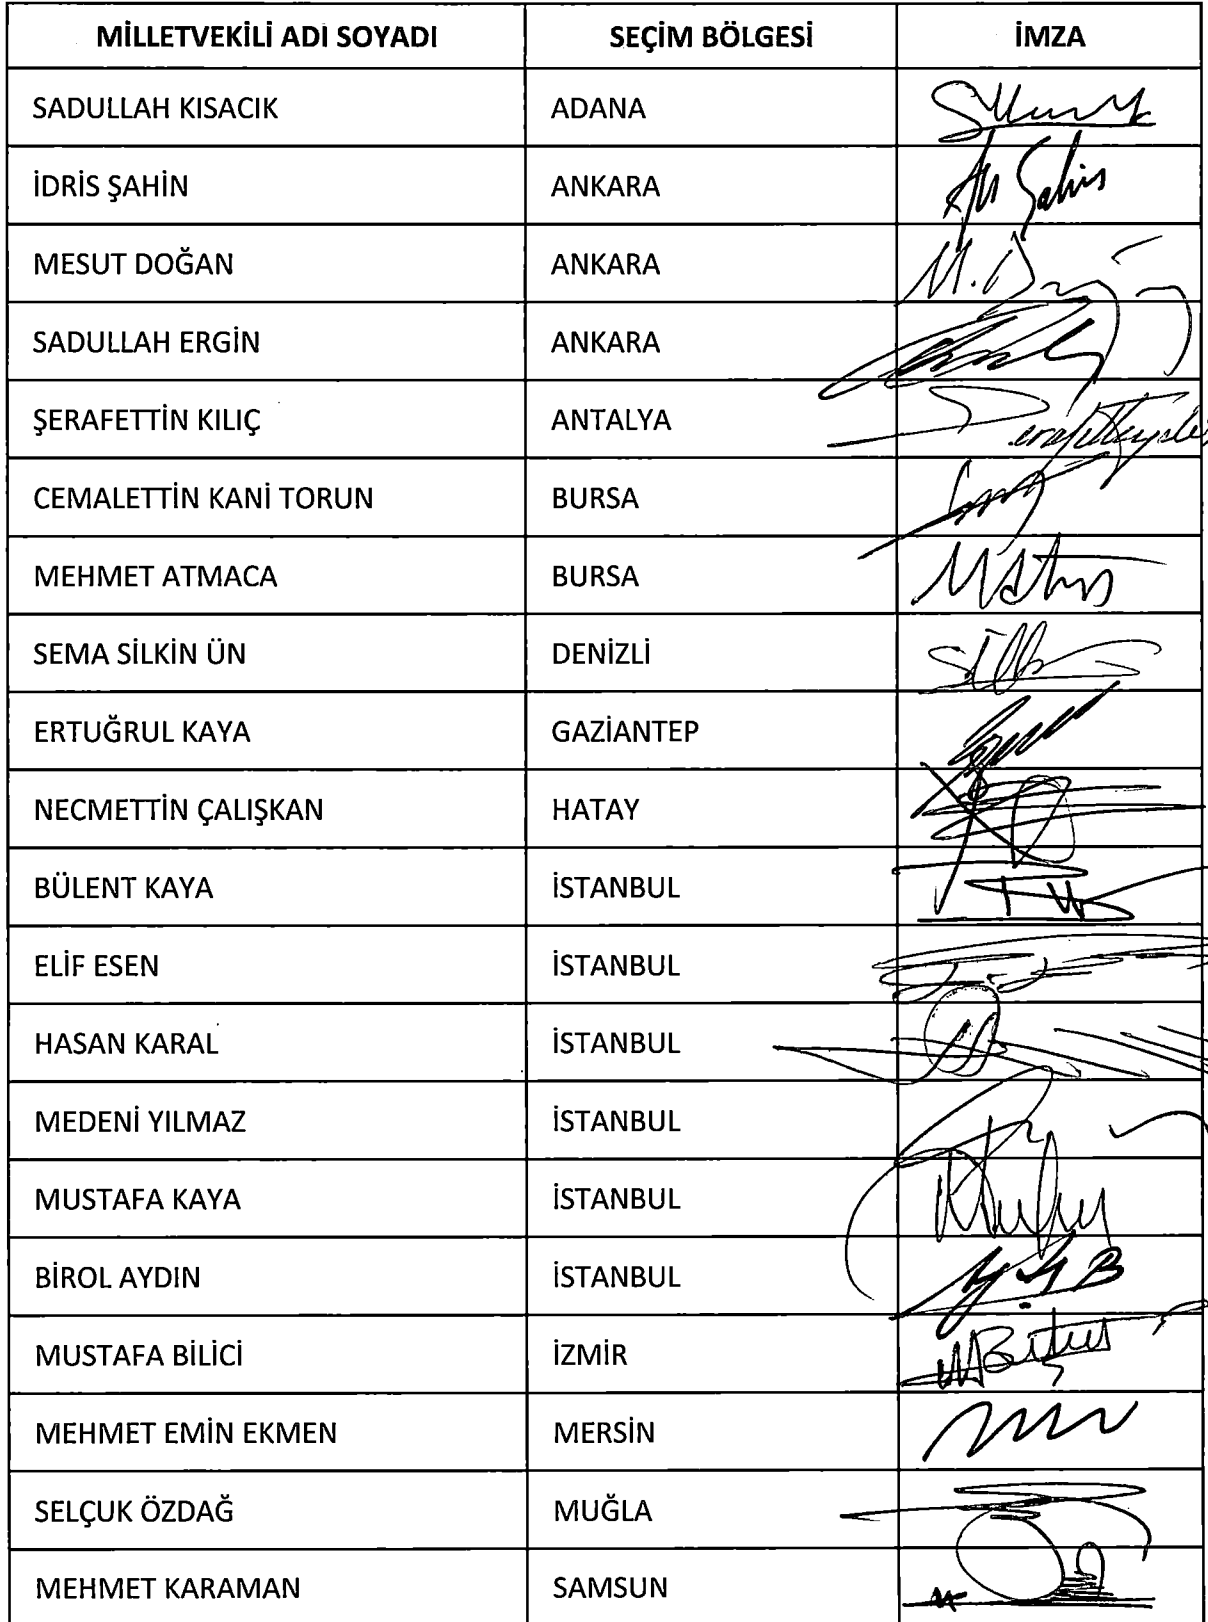 MİLLETVEKİLİ ADI SOYADI SEÇİM BÖLGESİ İMZA
SADULLAH KISACIK ADANA
İDRİS ŞAHİN ANKARA Şahin
MESUT DOĞAN ANKARA M. D
SADULLAH ERGİN ANKARA
ŞERAFETTİN KILIÇ ANTALYA
CEMALETTİN KANİ TORUN BURSA
MEHMET ATMACA BURSA
SEMA SİLKİN ÜN DENİZLİ
ERTUĞRUL KAYA GAZİANTEP
NECMETTİN ÇALIŞKAN HATAY
BÜLENT KAYA İSTANBUL
ELİF ESEN İSTANBUL
HASAN KARAL İSTANBUL
MEDENİ YILMAZ İSTANBUL
MUSTAFA KAYA İSTANBUL
BİROL AYDIN İSTANBUL
MUSTAFA BİLİCİ İZMİR
MEHMET EMİN EKMEN MERSİN
SELÇUK ÖZDAĞ MUĞLA
MEHMET KARAMAN SAMSUN